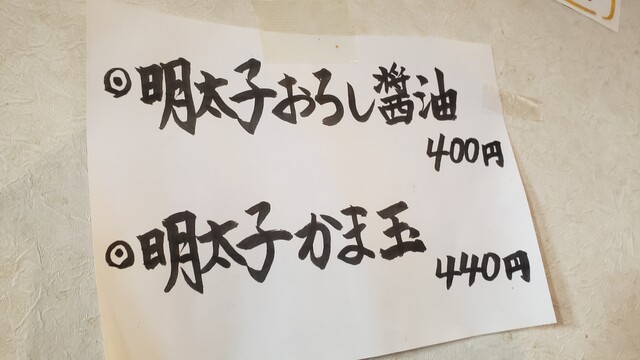 ◎明太子おろし醤油
400円
◎明太子かま玉
440円